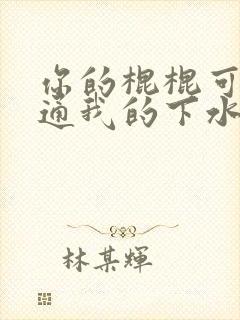 你的棍棍可
通我的下水
林某輝